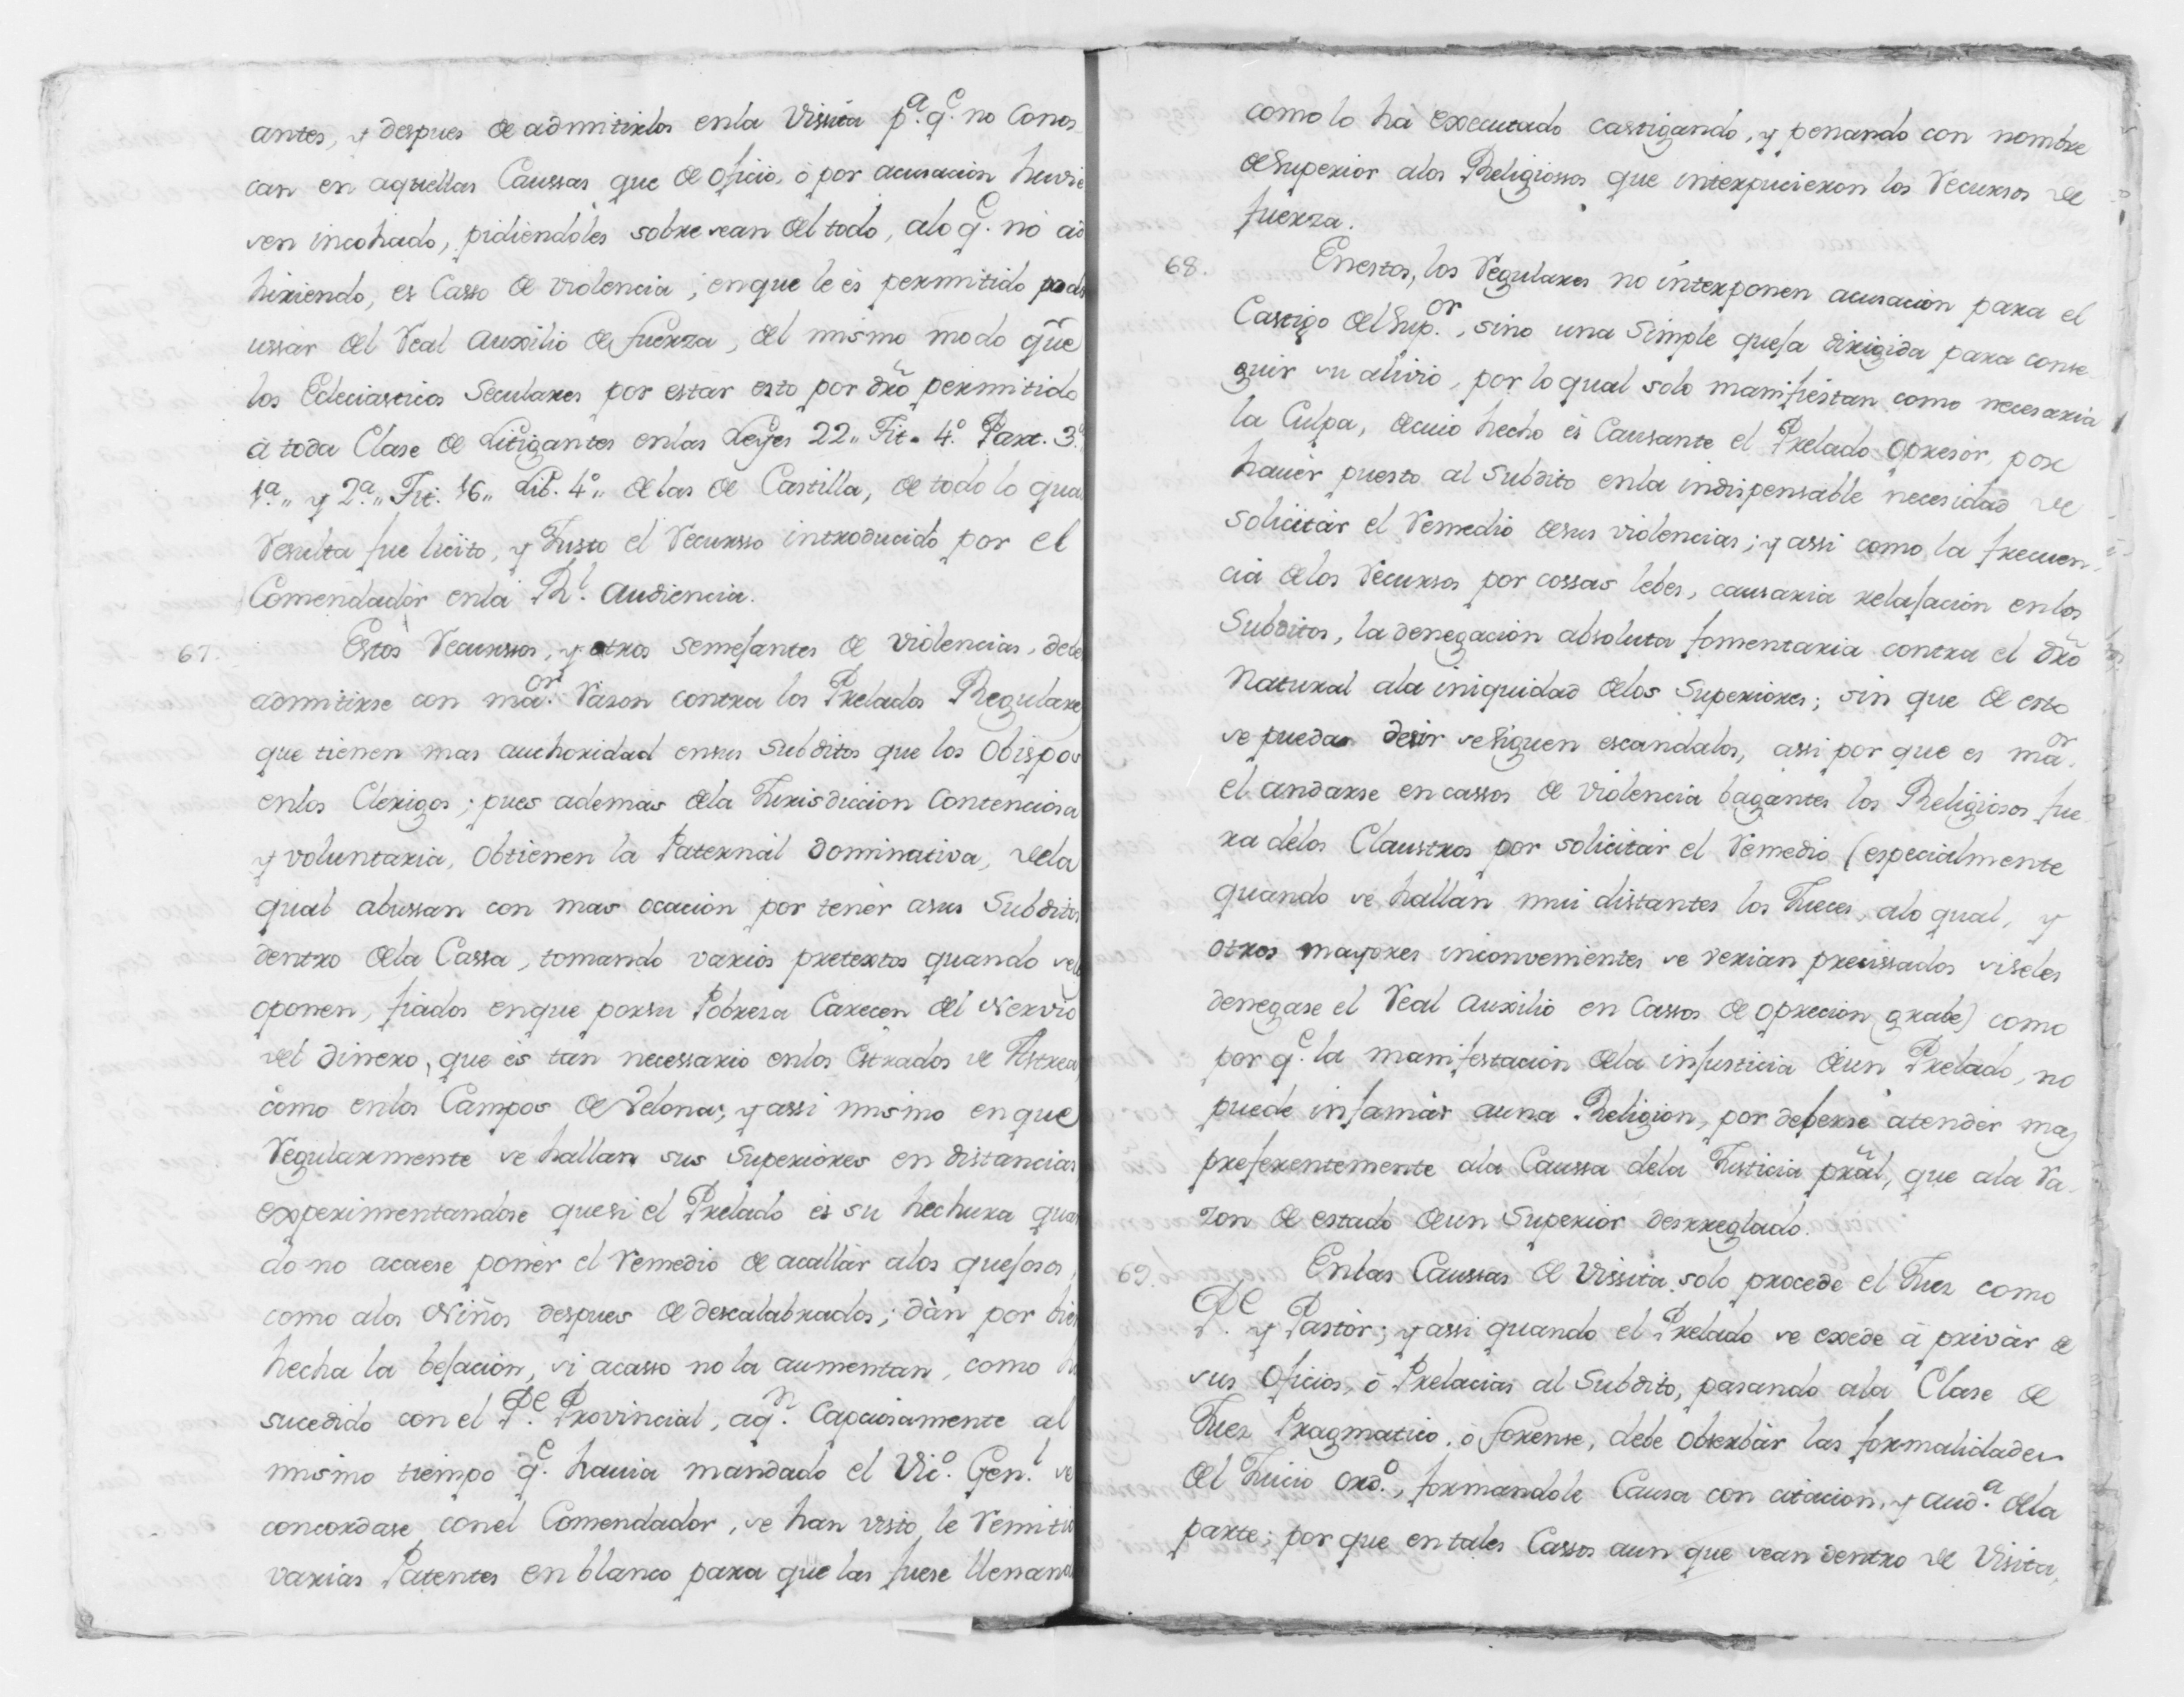 antes, y despues de admitirlos enla Vissita p.ª q.e no Conos
can en aquellas Caussas que de oficio, ò por acusacion huvie
sen incohado, pidiendoles sobresean del todo, alo q.e no ad
hiriendo, es Casso de violencia, enque le es permitido pode
ussar del Real Auxilio de fuerza, del mismo modo que
los Ecleciasticos Seculares por estar esto por dro permitido
à toda Clase de Litigantes enlas Leyes 22,, Tit. 4.º Part. 3.ª
1.ª,, y 2.ª,, Tit. 16,, Lib. 4.º,, delas de Castilla, de todo lo qua
Resulta fue licito, y Justo el Recursso introducido por el
Comendador enla R.l Audiencia.
67. Estos Recurssos, y otros semejantes de violencias, debe
admitirse con ma.or Rason contra los Prelados Regulare
que tienen mas authoridad ensus Subditos que los Obispos
enlos Clerigos; pues ademàs dela Jurisdiccion Contenciosa
y voluntaria, obtienen la Paternàl dominativa, dela
qual abussan con mas ocacion por tenèr asus Subditos
dentro dela Cassa, tomando varios pretextos quando sele
oponen, fiados enque porsu Pobresa Carecen del Nervio
del dinero, que es tan necessario enlos Estrados de Astrea,
como enlos Campos de Velona; y assi mismo en que
Regularmente se hallan sus Superiores en distancias
experimentandose quesi el Prelado es su hechura quan
do no acaese ponèr el Remedio de acallàr alos quejosos,
como alos Niños despues de descalabrados; dàn por bien
hecha la bejacion, si acasso no la aumentan, como h
sucedido con el P.e Provincial, aq.n Capciosamente al
mismo tiempo q.e havia mandado el Vic.º Gen.l se
concordase conel Comendador, se han visto le Remitio
varias Patentes en blanco para que las fuese llenan
como lo hà executado castigando, y penando con nombre
deSuperior alos Religiossos que interpucieron los Recursos de
fuerza.
68. Enestos, los Regulares no interponen acusacion para el
Castigo delSup.or, sino una Simple queja dirigida para conse
guir su alivio, por lo qual solo manifiestan como necesaria
la Culpa, decuio hecho es Causante el Prelado Opresòr, por
havèr puesto al Subdito enla indispensable necesidad de
Solicitàr el Remedio desus violencias; y assi como la frecuen
cia delos Recursos por cossas lebes, causaria relajacion enlos
Subditos, la denegacion absoluta fomentaria contra el dro
Natural ala iniquidad delos Superiores; sin que de esto
se pueda desir seSiguen escandalos, assi por que es ma.or
el andarse en cassos de violencia bagantes los Religiosos fue
ra delos Claustros por solicitàr el Remedio (especialmente
quando se hallan mui distantes los Jueces, alo qual, y
otros mayores inconvenientes se verian precissados siseles
denegase el Real Auxilio en Cassos de oprecion grabe) como
por q.e la manifestacion dela injusticia deun Prelado, no
puede infamàr auna Religion, por deberse atendèr mas
preferentemente ala Caussa dela Justicia prâl, que ala Ra
zon de estado deun Superior desrreglado.
69. Enlas Caussas de Vissita solo procede el Juez como
P.e y Pastòr; y assi quando el Prelado se excede à privàr de
sus Oficios, ò Prelacias al Subdito, pasando ala Clase de
Juez Pragmatico, ò forense, debe observàr las formalidades
del Juicio Ord.º, formandole Causa con citacion, y aud.ª dela
parte; por que en tales Cassos aun que sean dentro de Visita,